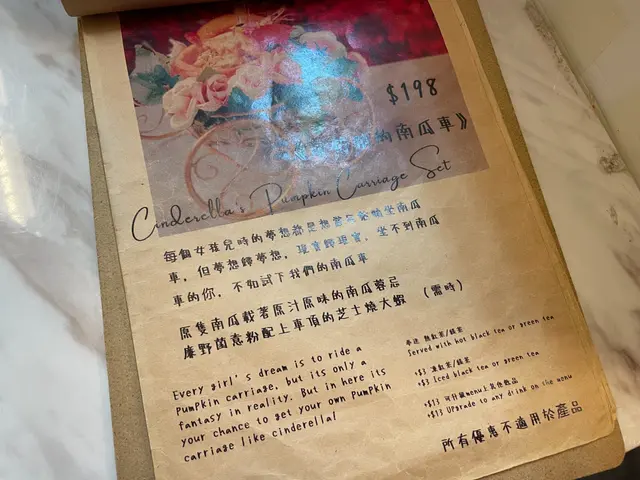 $198
的南瓜車》
Cinderella's Pumpkin Carriage Set
每個女孩兒時的夢想都是想當灰姑娘坐南瓜
車，但夢想歸夢想，現實歸現實，坐不到南瓜
車的你，不如試下我們的南瓜車
原隻南瓜載著原汁原味的南瓜蓉忌
廉野菌意粉配上車頂的芝士燒大蝦 （需時）
Every girl's dream is to ride a
Pumpkin carriage, but its only a
fantasy in reality. But in here its
your chance to get your own Pumpkin
carriage like cinderella!
奉送 熱紅茶/綠茶
Served with hot black tea or green tea
+$3 凍紅茶/綠茶
+$3 Iced black tea or green tea
+$13 可升級menu上其他飲品
+$13 Upgrade to any drink on the menu
所有優惠不適用於產品